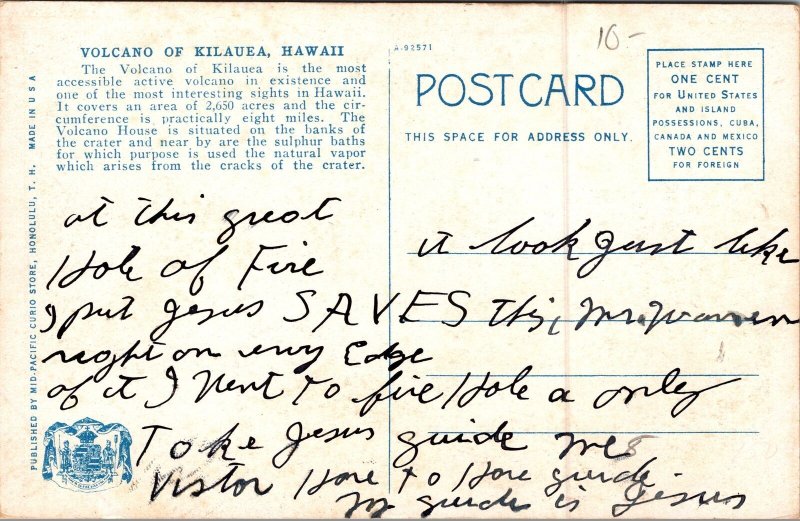 VOLCANO OF KILAUEA, HAWAII
The Volcano of Kilauea is the most
accessible active volcano in existence and
one of the most interesting sights in Hawaii.
It covers an area of 2,650 acres and the cir-
cumference is practically eight miles. The
Volcano House is situated on the banks of
the crater and near by are the sulphur baths
for which purpose is used the natural vapor
which arises from the cracks of the crater.
PUBLISHED BY MID-PACIFIC CURIO STORE, HONOLULU, T. H. MADE IN U S A
A-92571
10-
POST CARD
THIS SPACE FOR ADDRESS ONLY.
PLACE STAMP HERE
ONE CENT
FOR UNITED STATES
AND ISLAND
POSSESSIONS, CUBA,
CANADA AND MEXICO
TWO CENTS
FOR FOREIGN
at this great
Hole of Fire
I put Jesus SAVES
right on Edge
of it I Went To fire Hole a only
Toke Jesus guide me
Vistor Have to Have guide
my guide is Jesus
it look Just like
This, Mr.